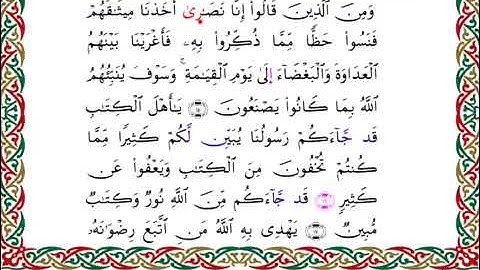 وَمِنَ ٱلَّذِينَ قَالُوٓا۟ إِنَّا نَصَٰرَىٰٓ أَخَذْنَا مِيثَٰقَهُمْ
فَنَسُوا۟ حَظًّا مِّمَّا ذُكِّرُوا۟ بِهِۦ فَأَغْرَيْنَا بَيْنَهُمُ
ٱلْعَدَاوَةَ وَٱلْبَغْضَآءَ إِلَىٰ يَوْمِ ٱلْقِيَٰمَةِ ۚ وَسَوْفَ يُنَبِّئُهُمُ
ٱللَّهُ بِمَا كَانُوا۟ يَصْنَعُونَ ۝ يَٰٓأَهْلَ ٱلْكِتَٰبِ
قَدْ جَآءَكُمْ رَسُولُنَا يُبَيِّنُ لَكُمْ كَثِيرًا مِّمَّا
كُنتُمْ تُخْفُونَ مِنَ ٱلْكِتَٰبِ وَيَعْفُوا۟ عَن
كَثِيرٍ ۝ قَدْ جَآءَكُم مِّنَ ٱللَّهِ نُورٌ وَكِتَٰبٌ
مُّبِينٌ ۝ يَهْدِى بِهِ ٱللَّهُ مَنِ ٱتَّبَعَ رِضْوَٰنَهُۥ